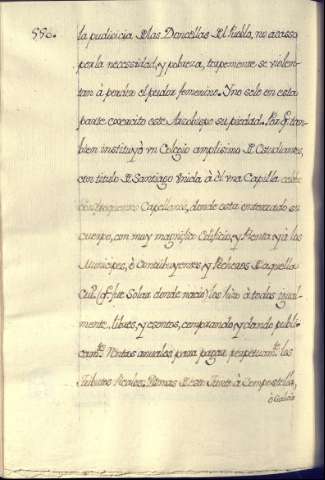 550.
la pudicicia de las Doncellas del Pueblo, no acasso
por la necessidad, y pobreza, torpemente se violen-
tan à perder el pudor femenino. Y no solo en esta
parte exercito este Arzobispo su piedad. Por q.e tam-
bien instituyò vn Colegio amplisimo de Estudiantes,
con titulo de Santiago vnida à èl vna Capilla
Capellanes, donde esta enterrado su
cuerpo, con muy magnifico Edificio, y
Municipes, ò Contribuyentes y Pecheros de aquella
Ciu.d (q.e fue Solar donde naciò) los hizo à todos igual-
mente, libres, y esentos, comprando, y dando publi-
cam.te Rentas anuales para pagar perpetuam.te los
Tributos Reales. Demas de esto Junto à Compostella,
ò Galicia